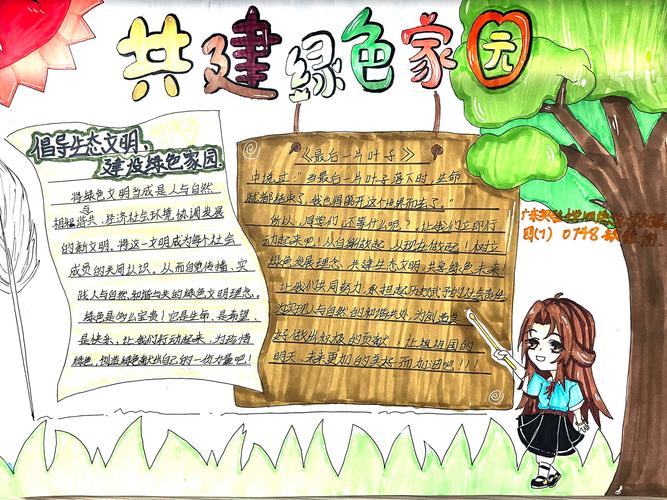 共建绿色家园
倡导生态文明,
建设绿色家园
将绿色文明当成是人与自然
相互共、经济社会环境协调发展
的新文明,将这一文明成为每个社会
成员的共同认识,从而自觉传播、实
践人与自然和谐与共的绿色文明理念。
绿色是多么宝贵!它是生命,是希望,
是快乐,让我们行动起来,为珍惜
绿色,创造绿色献出自己的一份力量吧!
《最后一片叶子》
中说过:"当最后一片叶子落下时,生命
就都结束了,我也将离开这个世界而去了。"
所以,同学们,还等什么呢?,让我们立即行
动起来吧!从自身做起!从现在做起!树立
绿色发展理念,共建生态文明,共享绿色未来!
让我们共同努力,承担起历史赋予的社会责任
为实现人与自然的和谐共处,为创造
好做出积极的贡献,让祖国的
明天、未来更加的美好而加油吧!!!
四(1) 0748